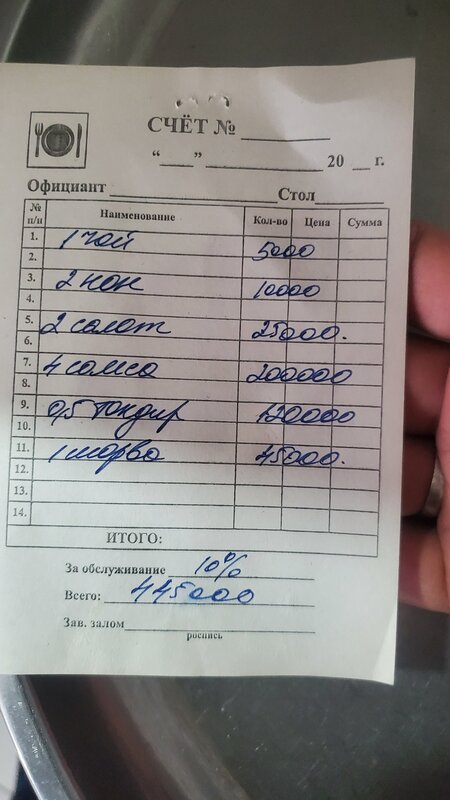 СЧЁТ № ________
“____” ____________ 20 __ г.
Официант ____________ Стол________
№ п/п Наименование Кол-во Цена Сумма
1. 1 чой 5000
2.
3. 2 нон 10000
4.
5. 2 салот 25000.
6.
7. 4 сомса 200000
8.
9. 0,5 тондир 120000
10.
11. 1 шорва 45000.
12.
13.
14.
ИТОГО:
За обслуживание 10%
Всего: 445000
Зав. залом____________
роспись